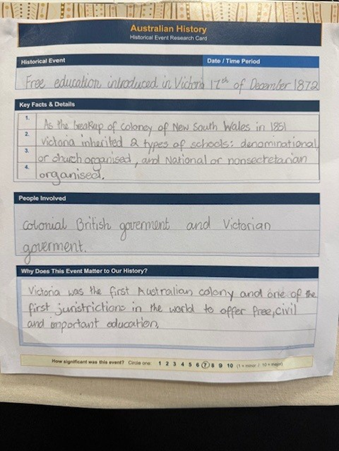 Australian History
Historical Event Research Card
Historical Event Date / Time Period
Free education introduced in Victoria 17th of December 1872
Key Facts & Details
1. As the breakup of colony of New South Wales in 1851
2. Victoria inherited 2 types of schools: denominational,
3. or church organised, and National or nonsectetarian
4. organised.
People Involved
colonial British goverment and Victorian
goverment.
Why Does This Event Matter to Our History?
Victoria was the first Australian colony and one of the
first juristrictions in the world to offer free, civil
and omportant education
How significant was this event? Circle one: 1 2 3 4 5 6 7 8 9 10